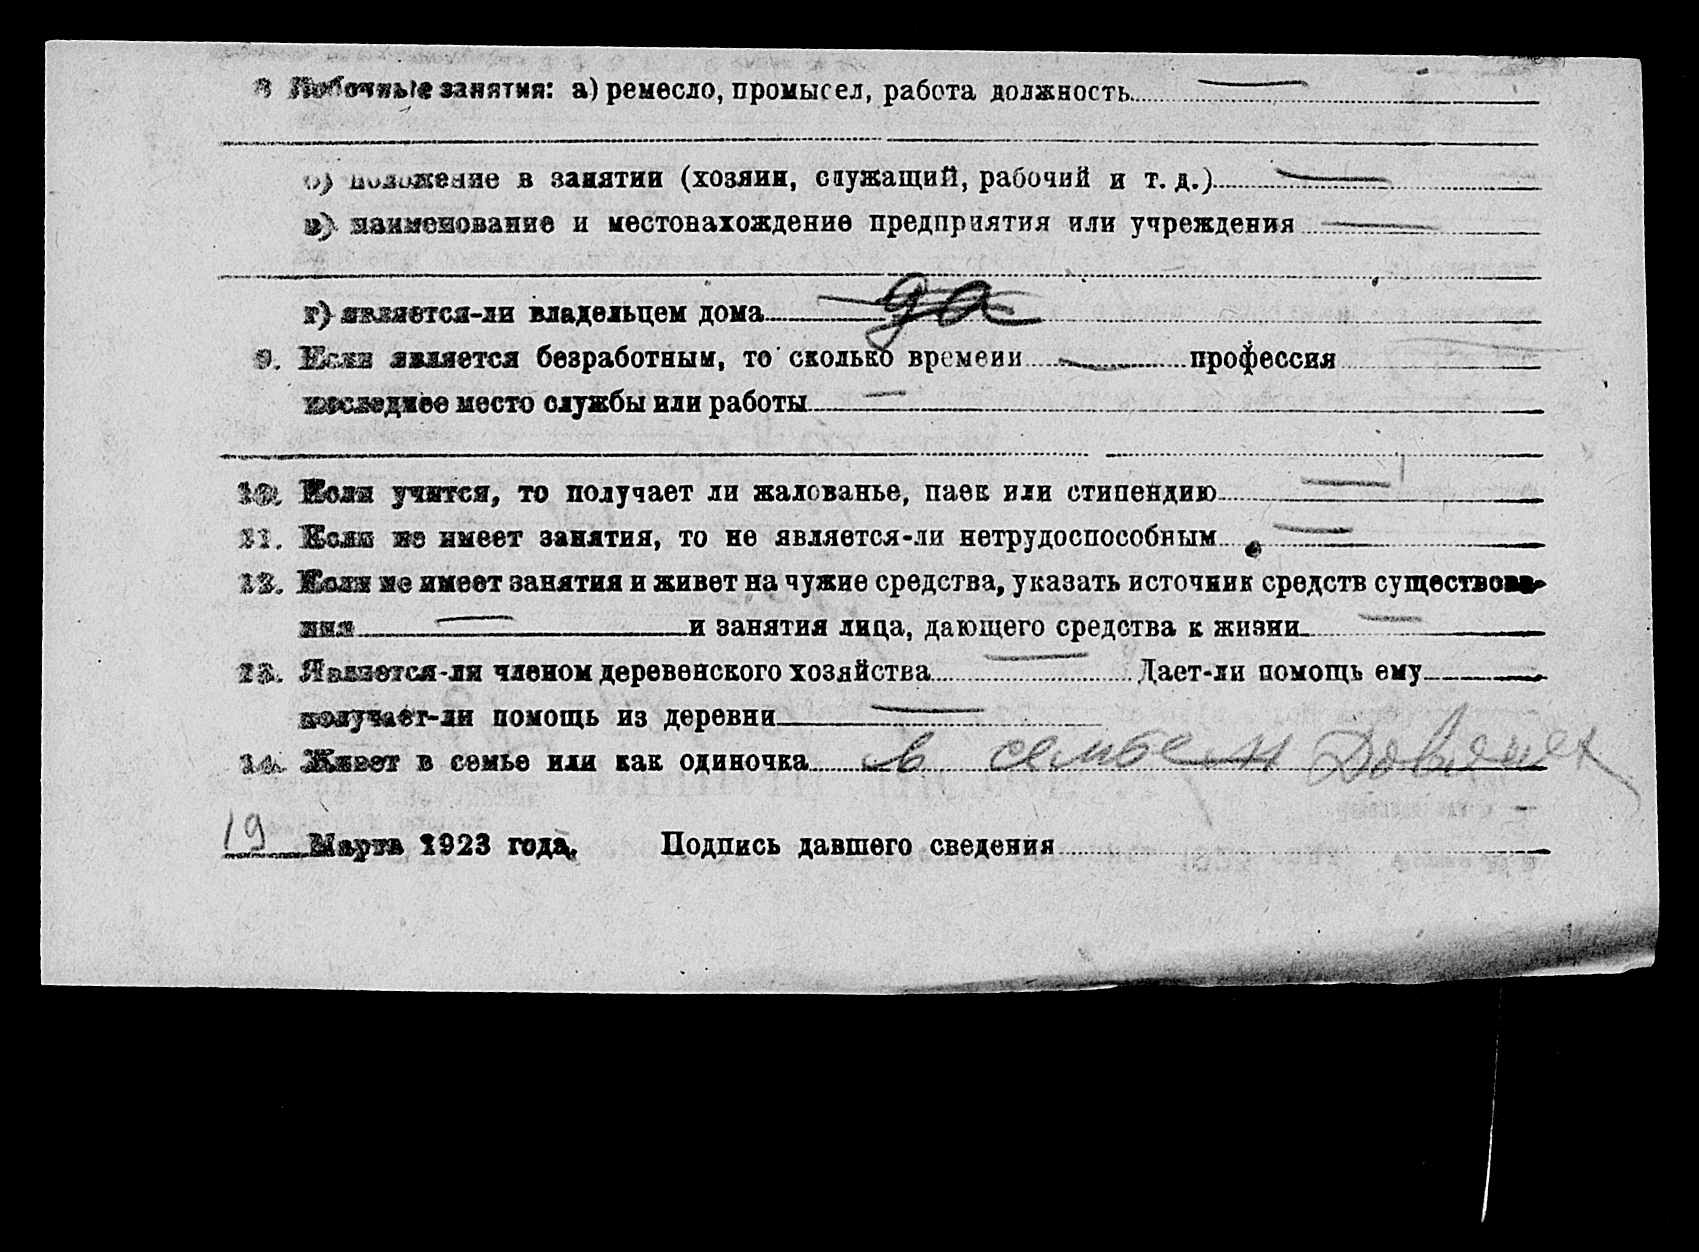 8 Побочные занятия: а) ремесло, промысел, работа должность —
б) положение в занятии (хозяин, служащий, рабочий и т. д.) —
в) наименование и местонахождение предприятия или учреждения —
г) является-ли владельцем дома да
9. Если является безработным, то сколько времени — профессия
последнее место службы или работы —
10. Если учится, то получает ли жалованье, паек или стипендию —
11. Если не имеет занятия, то не является-ли нетрудоспособным —
12. Если не имеет занятия и живет на чужие средства, указать источник средств существова-
ния — и занятия лица, дающего средства к жизни —
13. Является-ли членом деревенского хозяйства — Дает-ли помощь ему
получает-ли помощь из деревни —
14. Живет в семье или как одиночка в семье
19 Марта 1923 года. Подпись давшего сведения